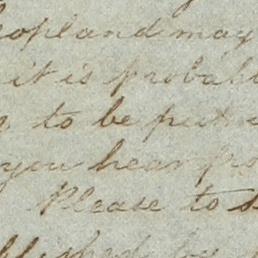 opland may
it is probabl
to be put
you hear fro
Please to s
by